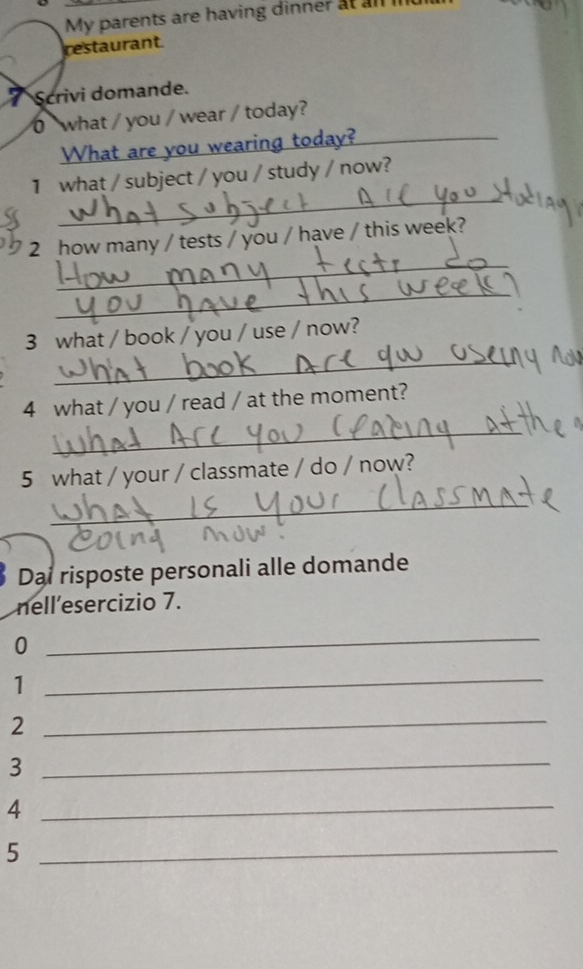 My parents are having dinner at an
restaurant.
7 Scrivi domande.
0 what / you / wear / today?
What are you wearing today?
1 what / subject / you / study / now?
What subject Are you studing
2 how many / tests / you / have / this week?
How many tests do
you have this week?
3 what / book / you / use / now?
What book Are you useing now
4 what / you / read / at the moment?
What Are you reading at the
5 what / your / classmate / do / now?
What is your classmate
doing now?
Dai risposte personali alle domande
nell'esercizio 7.
0
1
2
3
4
5